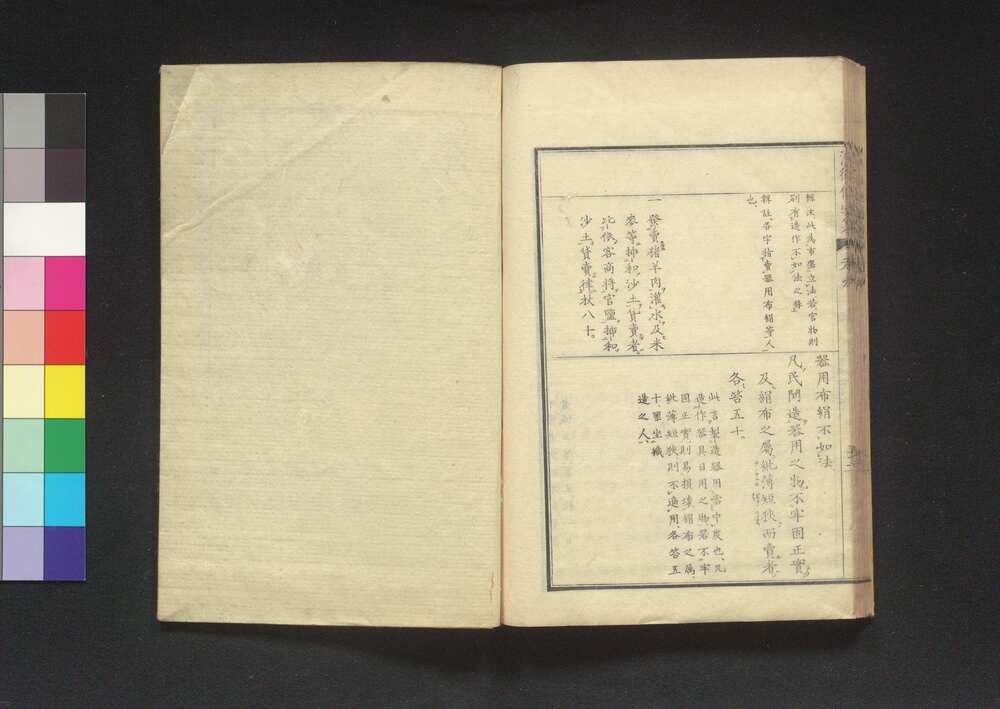 器用布絹不如法
凡民間造器用之物不牢固正實
及絹布之屬紕薄短狹而賣者
各笞五十
此言製造器用當中度也凡
造作器具日用之物若不牢
固正實則易損壞絹布之屬
紕薄短狹則不適用各笞五
十罪坐織
造之人
輯注此爲市廛立法若官物則
別有造作不如法之條
輯註各字指賣器用布絹等人
也
一發賣猪羊肉灌水及米
麥等插和沙土貨賣者
比依客商將官鹽插和
沙土貨賣律杖八十